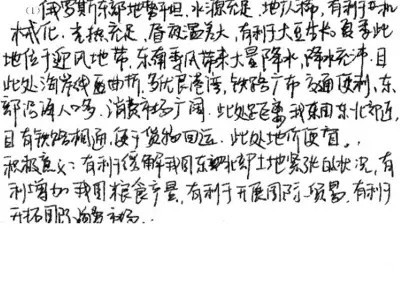 (1)俄罗斯东部地势平坦,水源充足,地广人稀,有利于机
械化。光热充足,昼夜温差大,有利于大豆生长。夏季此
地位于迎风地带,东南季风带来大量降水,降水充沛。且
此处海岸线曲折,多优良港湾,铁路广布,交通便利,东
部沿海人口多,消费市场广阔。此处距离我国东北部近,
且有铁路相通,便于货物回运。此处地价便宜。
积极意义:有利于缓解我国东北部土地紧张的状况,有
利增加我国粮食产量,有利于开展国际贸易,有利于
开拓国际 市场。